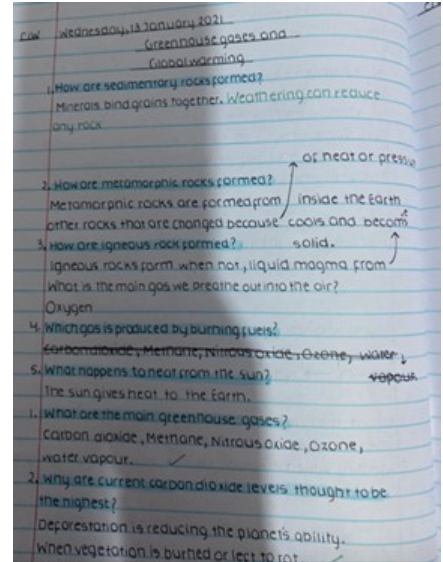 C/W Wednesday, 13 January 2021
Greenhouse gases and
Global warming
1. How are sedimentary rocks formed?
Minerals bind grains together. Weathering can reduce
any rock
of heat or pressu
2. How are metamorphic rocks formed?
Metamorphic rocks are formed from inside the Earth
other rocks that are changed because cools and becom
3. How are igneous rock formed? solid.
igneous rocks form when hot, liquid magma from
What is the main gas we breathe out into the air?
Oxygen
4. Which gas is produced by burning fuels?
Carbon dioxide, Methane, Nitrous Oxide, Ozone, water
vapour
5. What happens to heat from the sun?
The sun gives heat to the Earth.
1. What are the main greenhouse gases?
Carbon dioxide, Methane, Nitrous Oxide, Ozone,
water vapour.
2. Why are current carbon dioxide levels thought to be
the highest?
Deforestation is reducing the planet's ability.
When vegetation is burned or left to rot